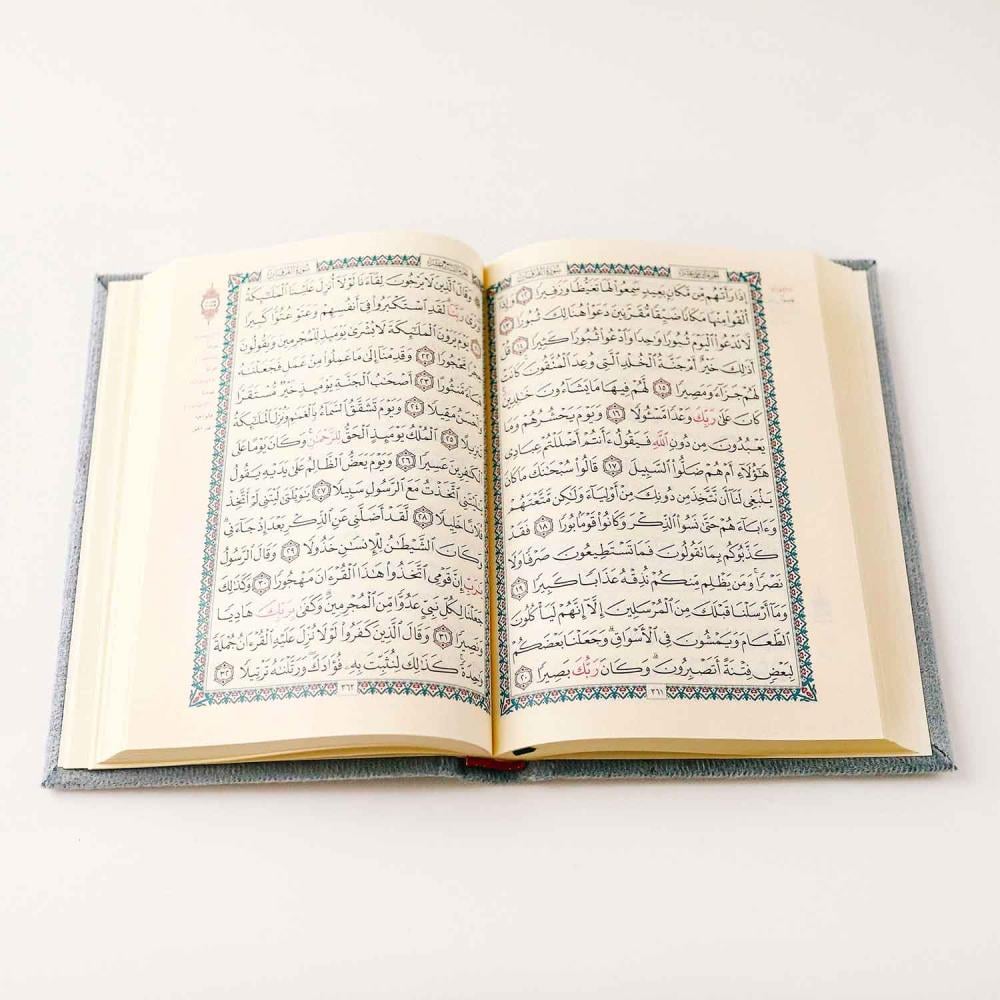 الجزء الثامن عشر سورة الفرقان
إِذَا رَأَتْهُم مِّن مَّكَانٍ بَعِيدٍ سَمِعُوا۟ لَهَا تَغَيُّظًا وَزَفِيرًا ١٢ وَإِذَآ
أُلْقُوا۟ مِنْهَا مَكَانًا ضَيِّقًا مُّقَرَّنِينَ دَعَوْا۟ هُنَالِكَ ثُبُورًا ١٣
لَّا تَدْعُوا۟ ٱلْيَوْمَ ثُبُورًا وَٰحِدًا وَٱدْعُوا۟ ثُبُورًا كَثِيرًا ١٤ قُلْ
أَذَٰلِكَ خَيْرٌ أَمْ جَنَّةُ ٱلْخُلْدِ ٱلَّتِى وُعِدَ ٱلْمُتَّقُونَ كَانَتْ
لَهُمْ جَزَآءً وَمَصِيرًا ١٥ لَّهُمْ فِيهَا مَا يَشَآءُونَ خَٰلِدِينَ
كَانَ عَلَىٰ رَبِّكَ وَعْدًا مَّسْـُٔولًا ١٦ وَيَوْمَ يَحْشُرُهُمْ وَمَا
يَعْبُدُونَ مِن دُونِ ٱللَّهِ فَيَقُولُ ءَأَنتُمْ أَضْلَلْتُمْ عِبَادِى
هَٰٓؤُلَآءِ أَمْ هُمْ ضَلُّوا۟ ٱلسَّبِيلَ ١٧ قَالُوا۟ سُبْحَٰنَكَ مَا كَانَ
يَنۢبَغِى لَنَآ أَن نَّتَّخِذَ مِن دُونِكَ مِنْ أَوْلِيَآءَ وَلَٰكِن مَّتَّعْتَهُمْ
وَءَابَآءَهُمْ حَتَّىٰ نَسُوا۟ ٱلذِّكْرَ وَكَانُوا۟ قَوْمًۢا بُورًا ١٨ فَقَدْ
كَذَّبُوكُم بِمَا تَقُولُونَ فَمَا تَسْتَطِيعُونَ صَرْفًا وَلَا
نَصْرًا وَمَن يَظْلِم مِّنكُمْ نُذِقْهُ عَذَابًا كَبِيرًا ١٩
وَمَآ أَرْسَلْنَا قَبْلَكَ مِنَ ٱلْمُرْسَلِينَ إِلَّآ إِنَّهُمْ لَيَأْكُلُونَ
ٱلطَّعَامَ وَيَمْشُونَ فِى ٱلْأَسْوَاقِ وَجَعَلْنَا بَعْضَكُمْ
لِبَعْضٍ فِتْنَةً أَتَصْبِرُونَ وَكَانَ رَبُّكَ بَصِيرًا ٢٠
٣٦١
سورة الفرقان
وَقَالَ ٱلَّذِينَ لَا يَرْجُونَ لِقَآءَنَا لَوْلَآ أُنزِلَ عَلَيْنَا ٱلْمَلَٰٓئِكَةُ
نَرَىٰ رَبَّنَا لَقَدِ ٱسْتَكْبَرُوا۟ فِىٓ أَنفُسِهِمْ وَعَتَوْ عُتُوًّا كَبِيرًا
يَوْمَ يَرَوْنَ ٱلْمَلَٰٓئِكَةَ لَا بُشْرَىٰ يَوْمَئِذٍ لِّلْمُجْرِمِينَ وَيَقُولُونَ
مَّحْجُورًا ٢٢ وَقَدِمْنَآ إِلَىٰ مَا عَمِلُوا۟ مِنْ عَمَلٍ فَجَعَلْنَٰهُ
مَّنثُورًا ٢٣ أَصْحَٰبُ ٱلْجَنَّةِ يَوْمَئِذٍ خَيْرٌ مُّسْتَقَرًّا
وَأَحْسَنُ مَقِيلًا ٢٤ وَيَوْمَ تَشَقَّقُ ٱلسَّمَآءُ بِٱلْغَمَٰمِ وَنُزِّلَ ٱلْمَلَٰٓئِكَةُ
تَنزِيلًا ٢٥ ٱلْمُلْكُ يَوْمَئِذٍ ٱلْحَقُّ لِلرَّحْمَٰنِ وَكَانَ يَوْمًا عَلَى
ٱلْكَٰفِرِينَ عَسِيرًا ٢٦ وَيَوْمَ يَعَضُّ ٱلظَّالِمُ عَلَىٰ يَدَيْهِ يَقُولُ
يَٰلَيْتَنِى ٱتَّخَذْتُ مَعَ ٱلرَّسُولِ سَبِيلًا ٢٧ يَٰوَيْلَتَىٰ لَيْتَنِى لَمْ أَتَّخِذْ
فُلَانًا خَلِيلًا ٢٨ لَّقَدْ أَضَلَّنِى عَنِ ٱلذِّكْرِ بَعْدَ إِذْ جَآءَنِى
وَكَانَ ٱلشَّيْطَٰنُ لِلْإِنسَٰنِ خَذُولًا ٢٩ وَقَالَ ٱلرَّسُولُ
يَٰرَبِّ إِنَّ قَوْمِى ٱتَّخَذُوا۟ هَٰذَا ٱلْقُرْءَانَ مَهْجُورًا ٣٠ وَكَذَٰلِكَ
جَعَلْنَا لِكُلِّ نَبِىٍّ عَدُوًّا مِّنَ ٱلْمُجْرِمِينَ وَكَفَىٰ بِرَبِّكَ هَادِيًا
وَنَصِيرًا ٣١ وَقَالَ ٱلَّذِينَ كَفَرُوا۟ لَوْلَا نُزِّلَ عَلَيْهِ ٱلْقُرْءَانُ جُمْلَةً
وَٰحِدَةً كَذَٰلِكَ لِنُثَبِّتَ بِهِۦ فُؤَادَكَ وَرَتَّلْنَٰهُ تَرْتِيلًا ٣٢
٣٦٢